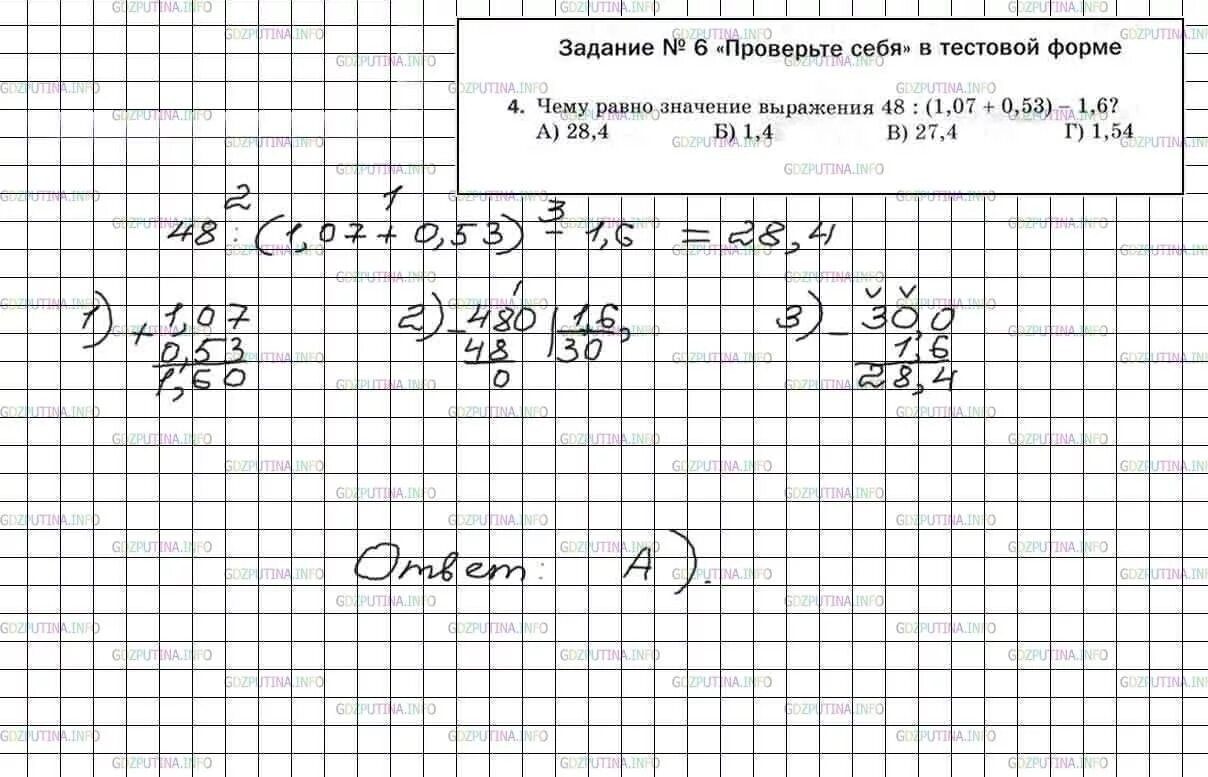 Задание № 6 «Проверьте себя» в тестовой форме
4. Чему равно значение выражения 48 : (1,07 + 0,53) – 1,6?
А) 28,4 Б) 1,4 В) 27,4 Г) 1,54
2 1 3
48 : (1,07 + 0,53) - 1,6 = 28,4
1) + 1,07 2) - 480 | 1,6, 3) - 30,0
0,53 48 30 1,6
1,60 0 28,4
Ответ: А).
GDZPUTINA.INFO